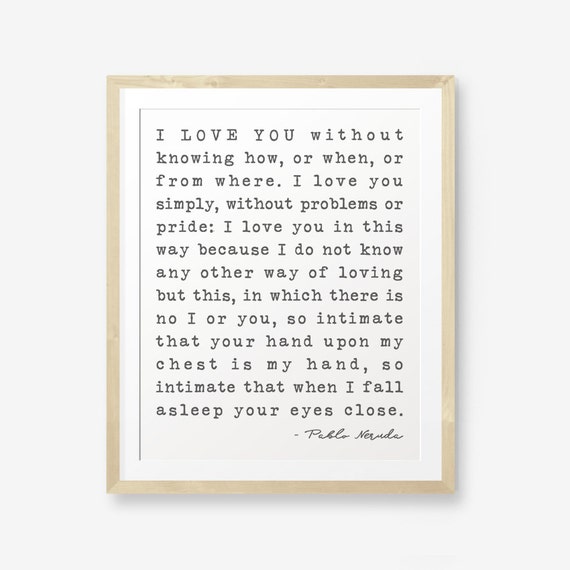 I LOVE YOU without
knowing how, or when, or
from where. I love you
simply, without problems or
pride: I love you in this
way because I do not know
any other way of loving
but this, in which there is
no I or you, so intimate
that your hand upon my
chest is my hand, so
intimate that when I fall
asleep your eyes close.
- Pablo Neruda